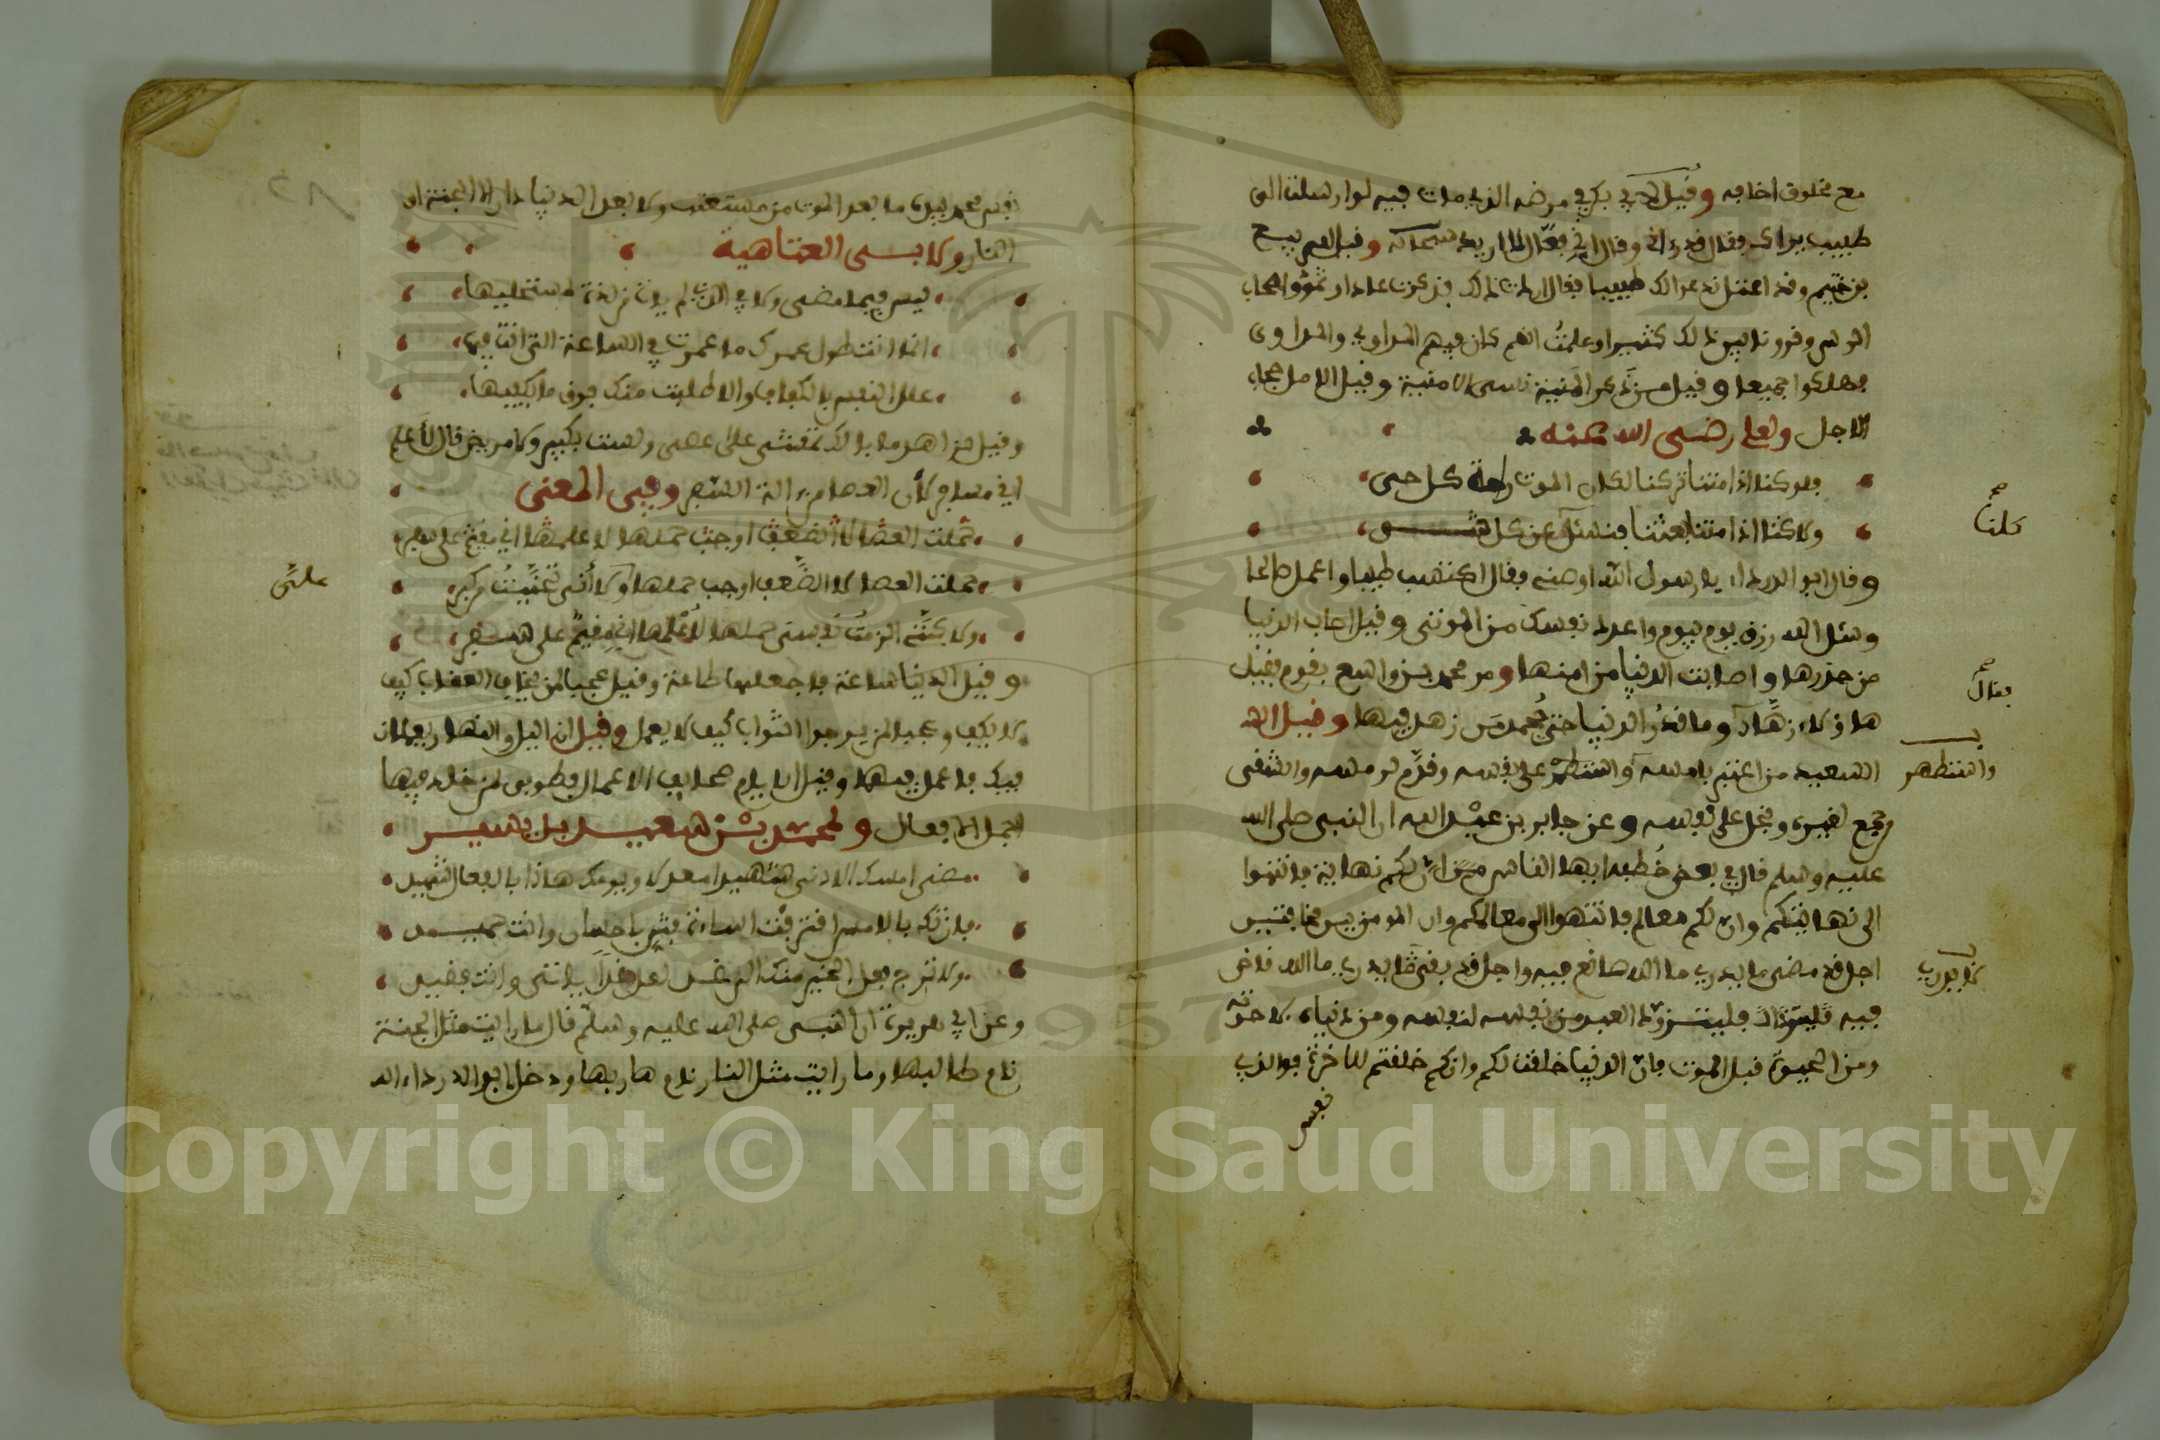 مع مخلوق اخافه وقيل لابي بكر في مرضه الذي مات فيه لو ارسلت الى
طبيب يراك فقال قد راني وقال اني فعّال لما اريد وقيل للربيع
بن خثيم وقد اعتل ندعو الك طبيبا فقال اردت ذلك فذكرت عادا وثمودا واصحاب
الرس وقرونا بين ذلك كثيرا وعلمت انهم كان فيهم المداوي والمداوى
فهلكوا جميعا وقيل من ذكر المنية نسى الامنية وقيل الامل حجاب
الاجل ولعلي رضى الله عنه
فلو كنا اذا متنا تركنا لكان الموت راحة كل حى
ولاكنا اذا متنا بعثنا فنسئل عن كل شى
وقال ابو الدرداء يا رسول الله اوصنى فقال اكتسب طيبا واعمل صالحا
وسئل الله رزق يوم بيوم واعدد نفسك من الموتى وقيل اصاب الدنيا
من حذرها واصابت الدنيا من امنها ومر محمد بن واسع بقوم فقيل
هاؤلاء زهّاد وما قدر الدنيا حتى يحمد من زهد فيها وقيل ان
السعيد من اعتبر بامسه واستظهر على نفسه وقدّم لرمسه والشقى
من جمع لغيره وبخل على نفسه وعن جابر بن عبد الله ان النبى صلى الله
عليه وسلم قال في بعض خطبه ايها الناس ان لكم نهاية فانتهوا
الى نهايتكم وان لكم معالم فانتهوا الى معالمكم وان المومن بين مخافتين
اجل قد مضى ما يدري ما الله صانع فيه واجل قد بقى ما يدري ما الله قاض
فيه فليتزود العبد من نفسه لنفسه ومن دنياه لاخرته
ومن الحيوة قبل الموت فان الدنيا خلقت لكم وانكم خلقتم للاخرة فوالذي
نفس
كلنا
فقال
واستظهر
ما يدري
نفس محمد بيده ما بعد الموت من مستعتب ولا بعد الدنيا دار الا الجنة او
النار ولابى العتاهية
ليس فيما مضى ولا في الذي لم يات من لذة لمستحليها
انما انت طول عمرك ما عمرت في الساعة التى انت فيها
علل النفس بالكفاف والا طلبت منك فوق ما يكفيها
وقيل لزاهد ما بالك تمشى على عصى ولست بكبير ولا مريض قال لاعلم
اني مسافر لان العصا من الة السفر وفى المعنى
حملت العصا لا الضعف اوجب حملها لاعلمها اني مقيم على سفر
حملت العصا لا الضعف اوجب حملها ولا انى تحنيت من كبر
ولاكننى الزمت نفسى حملها لاعلمها اني مقيم على سفر
وقيل الدنيا ساعة فاجعلها طاعة وقيل عجبا لمن يخاف العقاب كيف
لا يكف وعجبا لمن يرجوا الثواب كيف لا يعمل وقيل ان اليل والنهار يعملان
فيك فاعمل فيهما وقيل الايام صحايف الاعمال فطوبى لمن خلد فيها
اجمل الافعال ولمحمد بن سعيد بن بشير
مضى امسك الادنى شهيدا معدلا ويومك هاذا بالفعال شهيد
فان تك بالامس اقترفت اساءة فثن باحسان وانت حميد
ولا ترج فعل الخير منك الى غد لعل غدا ياتى وانت فقيد
وعن ابي هريرة ان النبى صلى الله عليه وسلم قال ما رايت مثل الجنة
نام طالبها وما رايت مثل النار نام هاربها ودخل ابو الدرداء
Copyright © King Saud University
1957